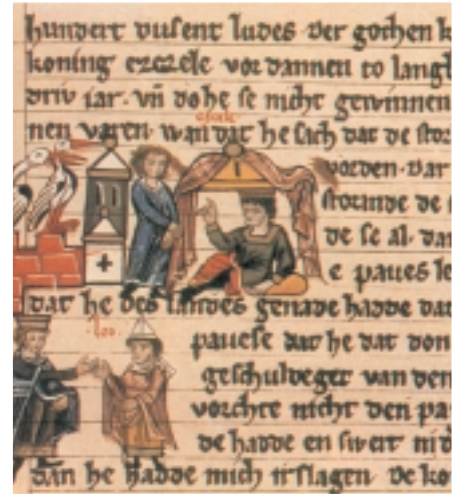 hundert dusent ludes der gothen k
koning ezzele vor dannen to lang
driv iar. vn do he se nicht gewinnen
nen waren. wan dat he sach dat de stor
worden. dar
storinde de
de se al. dar
e paues le
dat he des landes genade hadde dar
leo.
pauese dat he dar don
geschuldeget van den
vorchte nicht den pa
de hadde en swert
dan he hadde mich irslagen. de ko